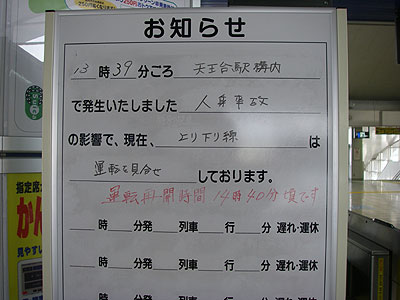 お知らせ
13時39分ごろ 天王台駅構内
で発生いたしました 人身事故
の影響で、現在、 上り下り線 は
運転を見合せ しております。
運転再開時間 14時40分頃です
時 分発 列車 行 分 遅れ・運休
時 分発 列車 行 分 遅れ・運休
時 分発 列車 行 分 遅れ・運休
指定席
かん
見やすい